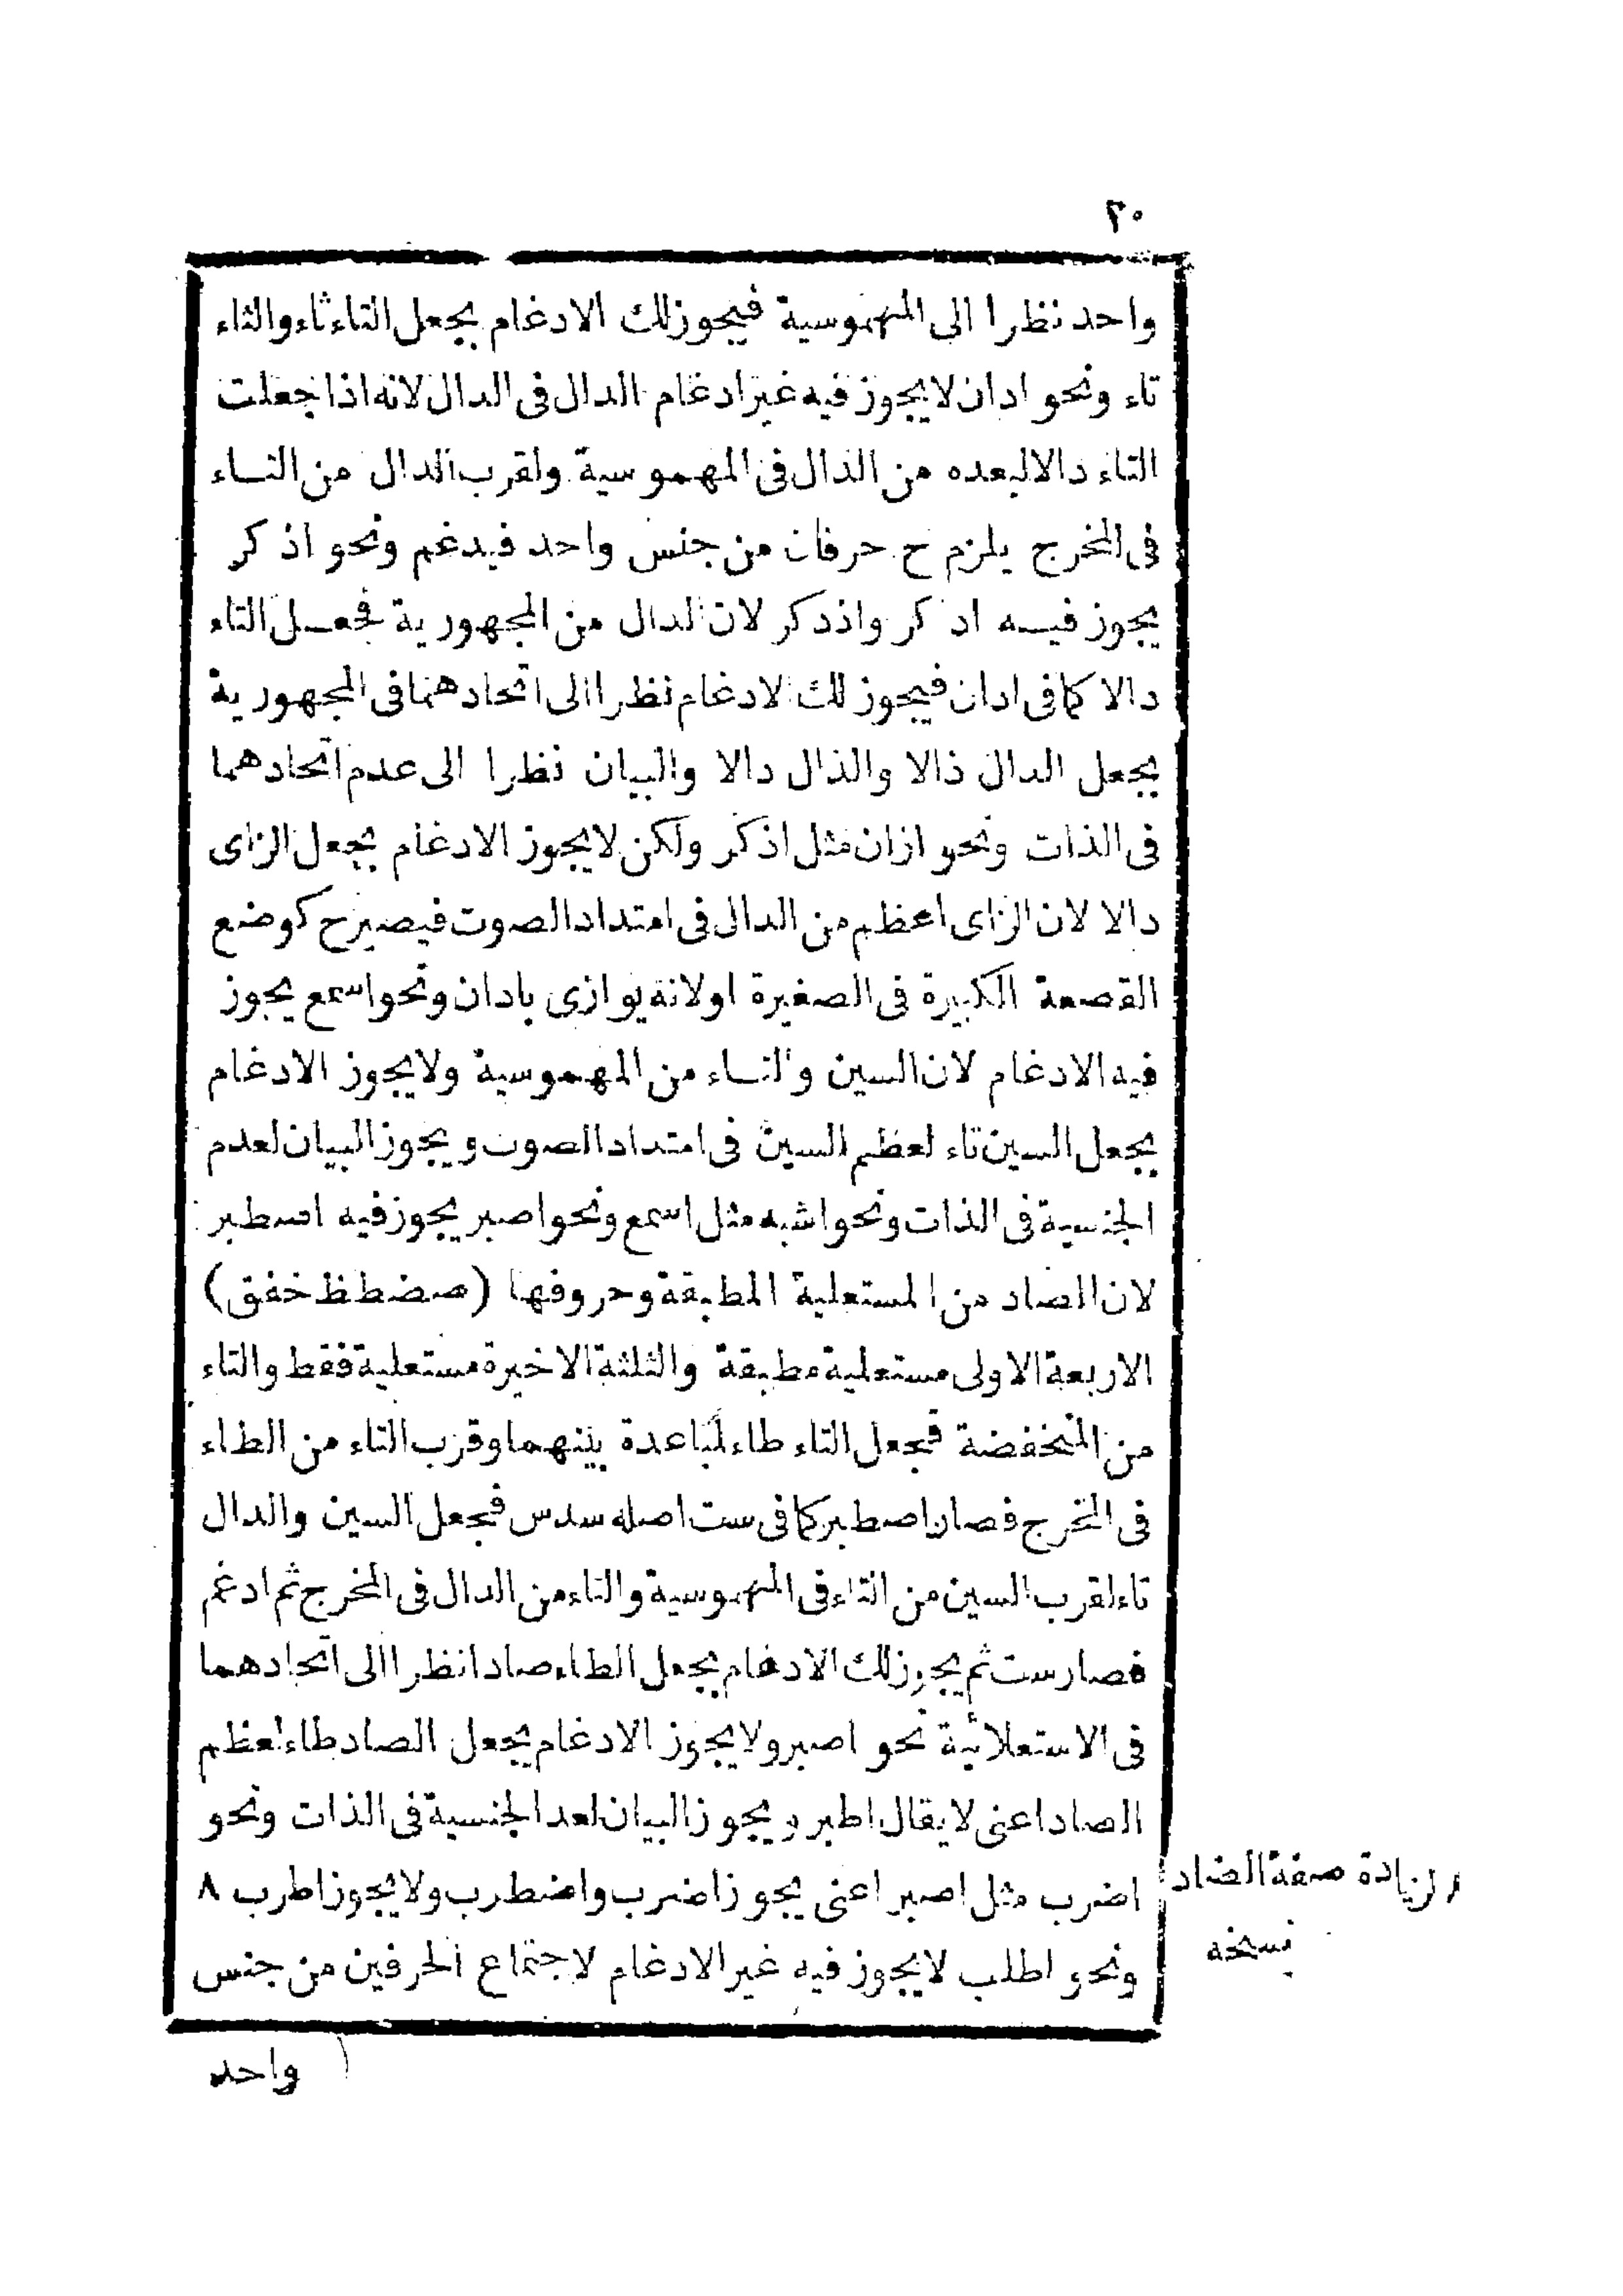 ٢٠
واحد نظرا الى المهموسية فيجوز لك الادغام بجعل التاء ثاء والثاء
تاء ونحو ادان لا يجوز فيه غير ادغام الدال فى الدال لانه اذا جعلت
التاء دالا لبعده من الدال فى المهموسية ولقرب الدال من التاء
فى المخرج يلزم ح حرفان من جنس واحد فيدغم ونحو اذكر
يجوز فيه ادكر واذدكر لان الدال من المجهورية فجعل التاء
دالا كما فى ادان فيجوز لك الادغام نظرا الى اتحادهما فى المجهورية
بجعل الدال ذالا والذال دالا والبيان نظرا الى عدم اتحادهما
فى الذات ونحو ازان مثل اذكر ولكن لا يجوز الادغام بجعل الزاى
دالا لان الزاى اعظم من الدال فى امتداد الصوت فيصير ح كوضع
القصعة الكبيرة فى الصغيرة اولانه يوازى بادان ونحو اسمع يجوز
فيه الادغام لان السين والتاء من المهموسية ولا يجوز الادغام
بجعل السين تاء لعظم السين فى امتداد الصوت ويجوز البيان لعدم
الجنسية فى الذات ونحو اشبه مثل اسمع ونحو اصبر يجوز فيه اصطبر
لان الصاد من المستعلية المطبقة وحروفها (صضطظ خغق)
الاربعة الاولى مستعلية مطبقة والثلثة الاخيرة مستعلية فقط والتاء
من المنخفضة فجعل التاء طاء لمباعدة بينهما وقرب التاء من الطاء
فى المخرج فصار اصطبر كما فى ست اصله سدس فجعل السين والدال
تاء لقرب السين من التاء فى المهموسية والتاء من الدال فى المخرج ثم ادغم
فصار ست ثم يجوز لك الادغام بجعل الطاء صادا نظرا الى اتحادهما
فى الاستعلائية نحو اصبر ولا يجوز الادغام بجعل الصاد طاء لعظم
الصاد اعنى لا يقال اطبر ويجوز البيان لعد الجنسية فى الذات ونحو
اضرب مثل اصبر اعنى يجوز اضرب واضطرب ولا يجوز اطرب ٨
ونحو اطلب لا يجوز فيه غير الادغام لاجتماع الحرفين من جنس
٨ لزيادة صفة الضاد
نسخه
واحد